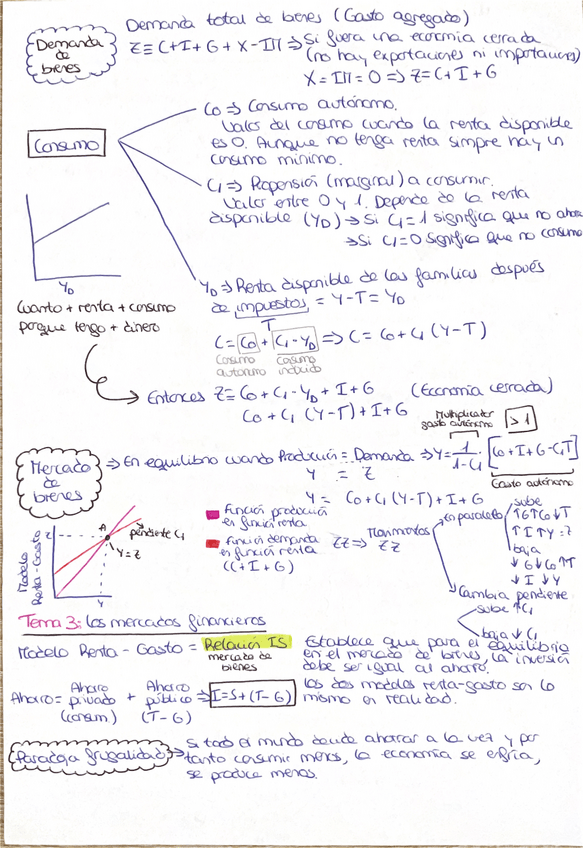 Demanda de bienes
Demanda total de bienes (Gasto agregado)
Z ≡ C+I+G+X-IM ⇒ Si fuera una economía cerrada
(no hay exportaciones ni importaciones)
X = IM = 0 ⇒ Z = C+I+G
Consumo
C0 ⇒ Consumo autónomo.
Valor del consumo cuando la renta disponible
es 0. Aunque no tenga renta siempre hay un
consumo mínimo.
C1 ⇒ Propensión (marginal) a consumir.
Valor entre 0 y 1. Depende de la renta
disponible (YD) → Si C1 = 1 significa que no ahorro
→ Si C1 = 0 significa que no consumo
YD
Cuanto + renta + consumo
porque tengo + dinero
YD ⇒ Renta disponible de las familias después
de impuestos = Y-T = YD
T
C = C0 + C1 - YD ⇒ C = C0 + C1 (Y-T)
Consumo autónomo
Consumo inducido
Entonces Z ≡ C0 + C1 - YD + I + G (Economía cerrada)
C0 + C1 (Y-T) + I + G
Multiplicador gasto autónomo
> 1
Mercado de bienes
⇒ En equilibrio cuando Producción = Demanda ⇒ Y = 1/1-C1 · [C0 + I + G - C1T]
Y = Z
Gasto autónomo
Y = C0 + C1 (Y-T) + I + G
Modelo Renta-Gasto
Z
A
pendiente C1
Y = Z
Y
Función producción
en función renta
Función demanda
en función renta
(C+I+G)
ZZ ⇒ Movimientos ZZ
En paralelo
sube
↑G ↑C0 ↓T
↑I ↑Y = Z
baja
↓G ↓C0 ↑T
↓I ↓Y
Cambia pendiente
sube ↑C1
baja ↓C1
Tema 3: Los mercados financieros
Modelo Renta - Gasto = Relación IS
mercado de bienes
Establece que para el equilibrio
en el mercado de bienes, la inversión
debe ser igual al ahorro.
Ahorro = Ahorro privado (consum) + Ahorro público (T-G) ⇒ I = S + (T-G)
Los dos modelos renta-gasto son lo
mismo en realidad.
Paradoja frugalidad
⇒ Si todo el mundo decide ahorrar a la vez y por
tanto consumir menos, la economía se enfría,
se produce menos.